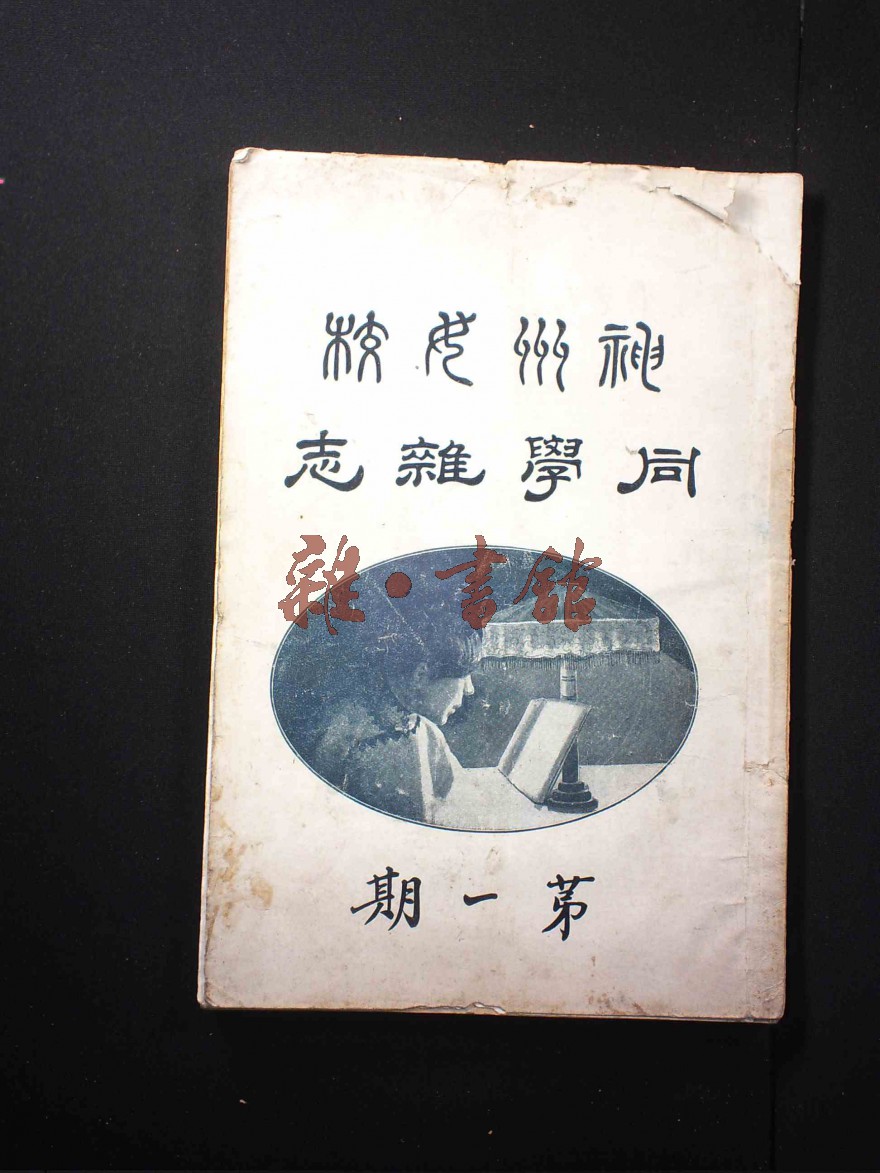 神州女校
同學雜志
雜·書館
第一期